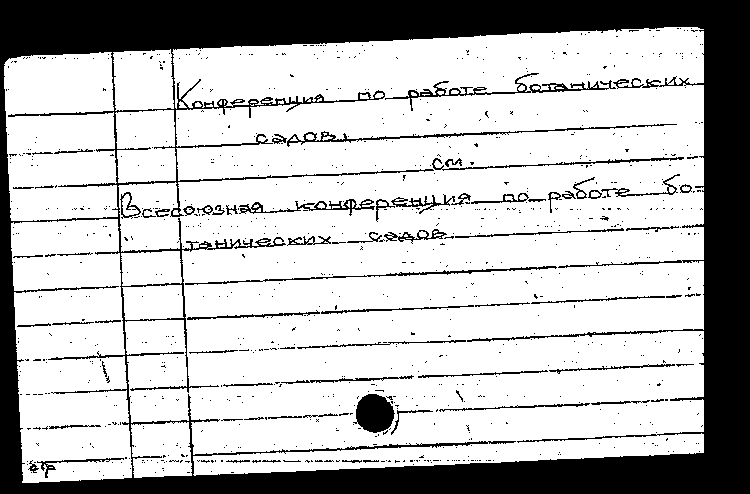 Конференция по работе ботанических
садов.
см.
Всесоюзная конференция по работе бо-
танических садов.